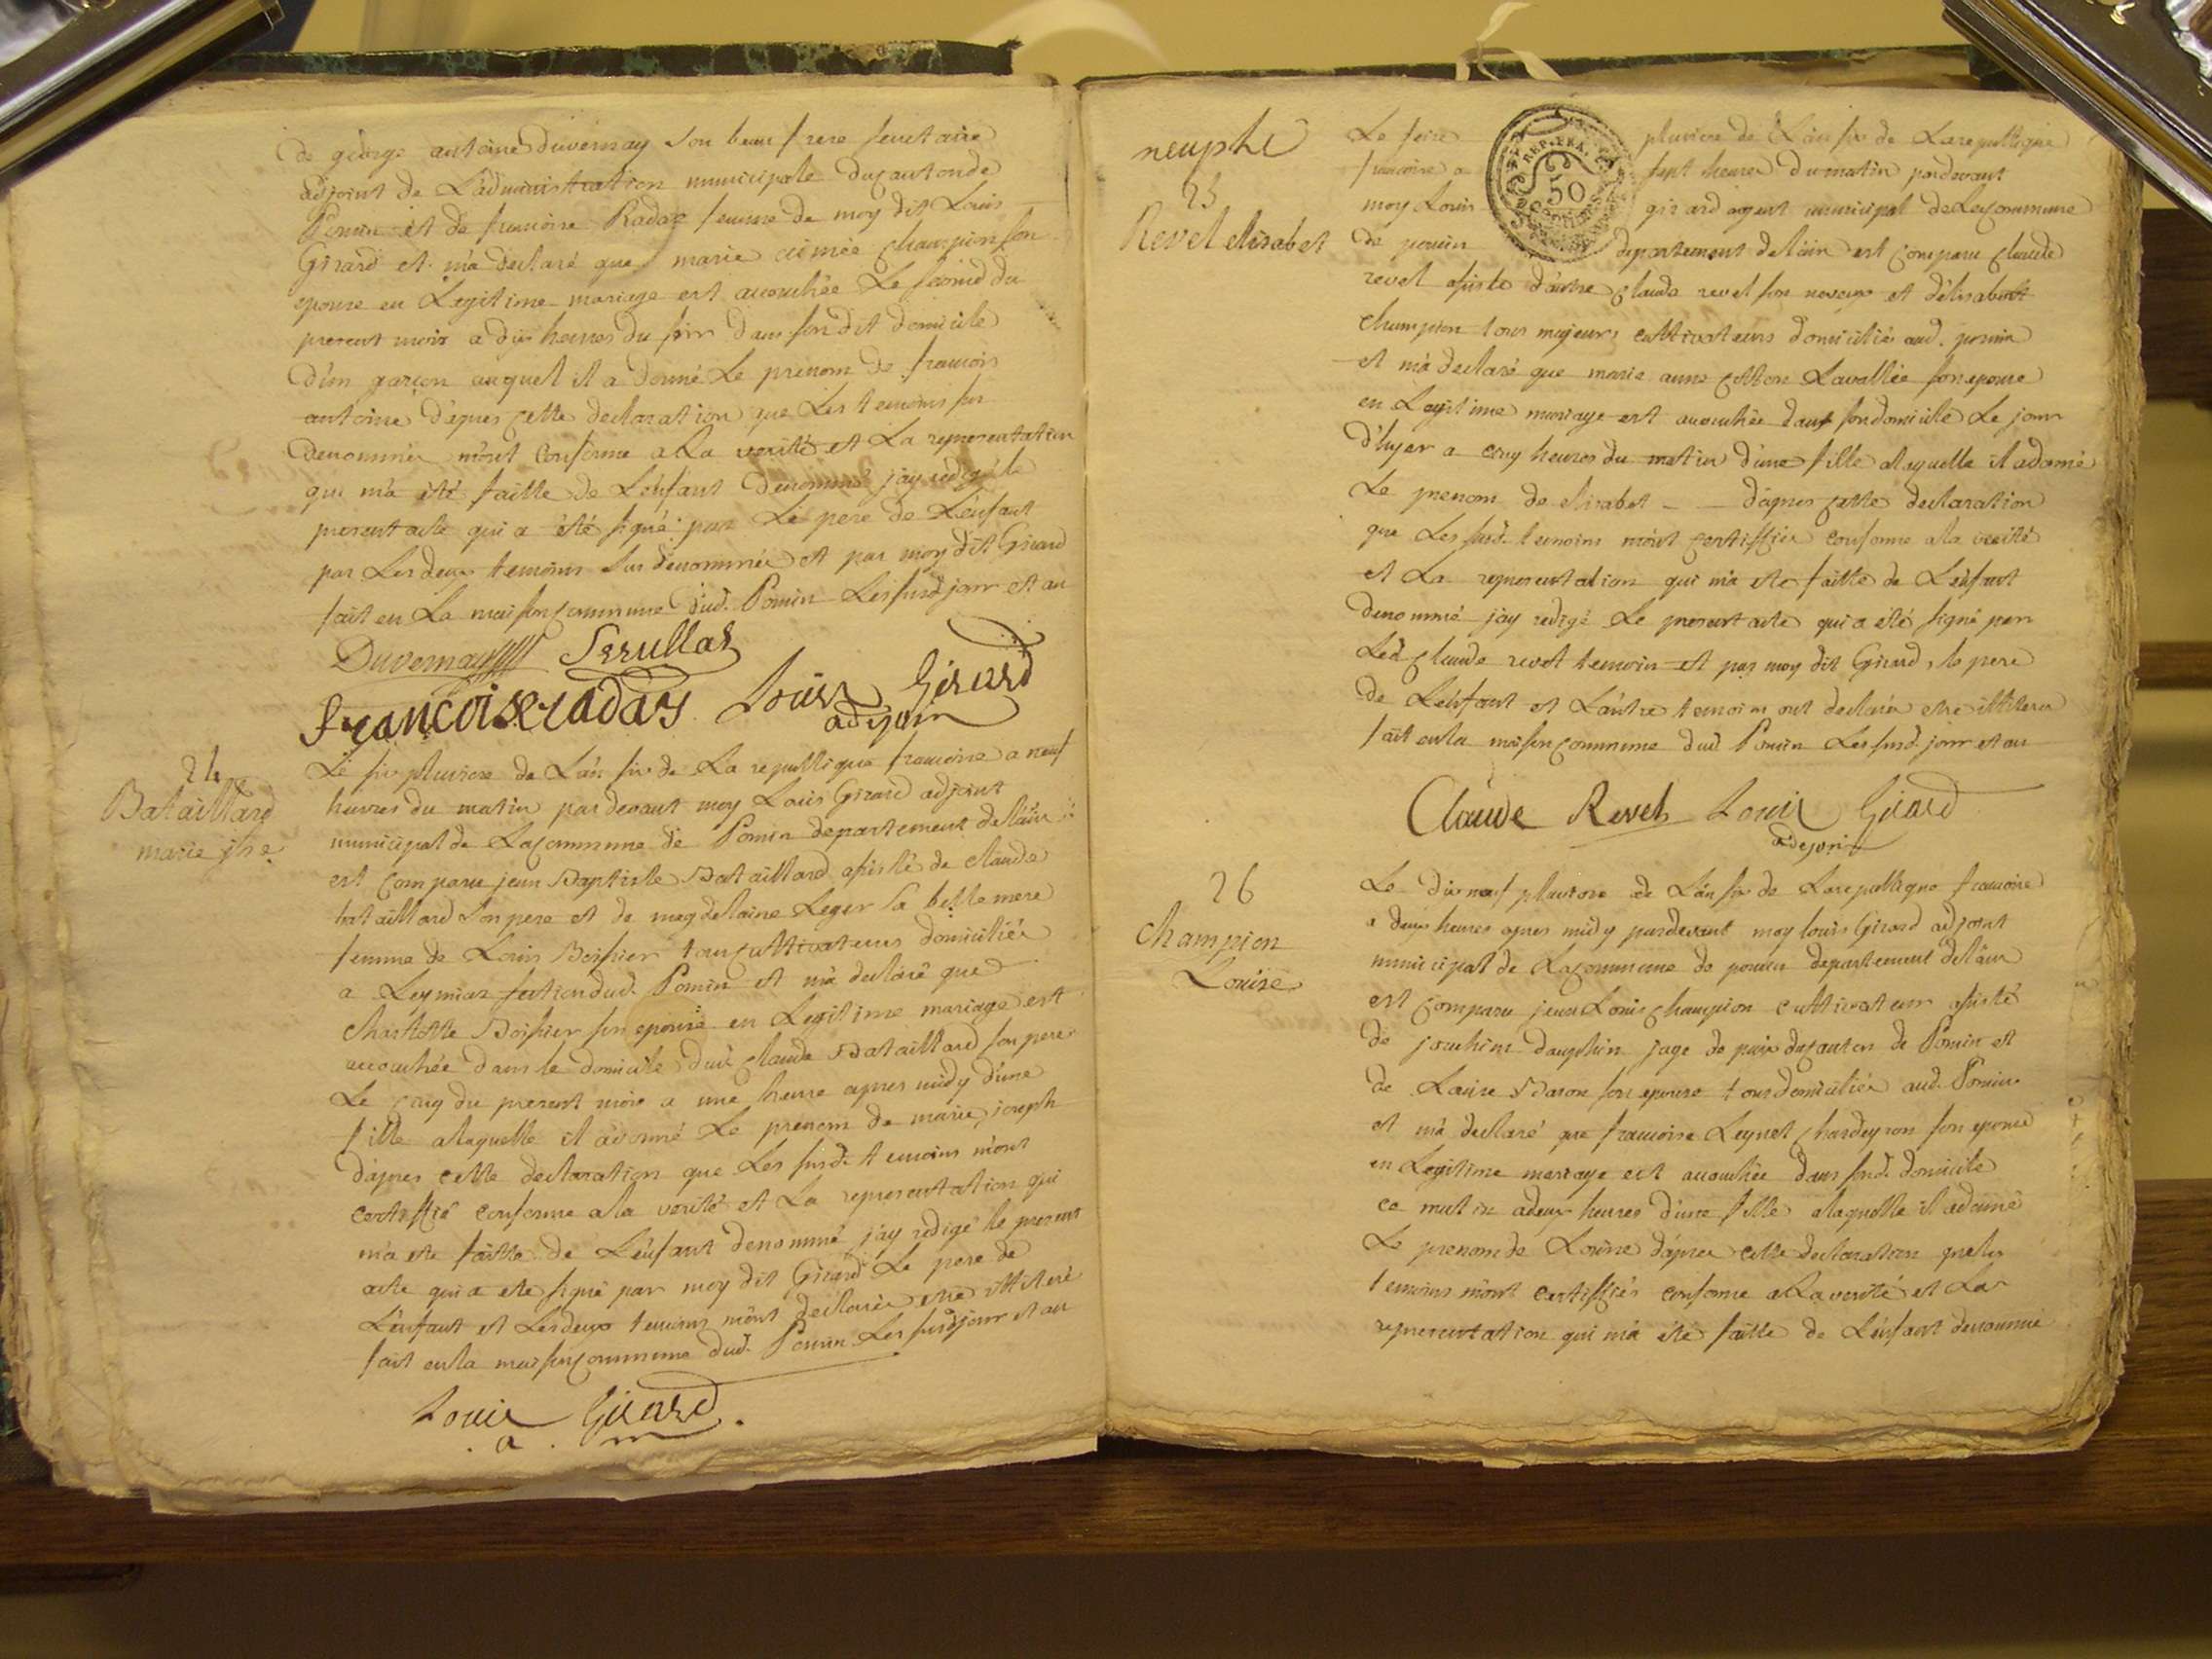 de george antoine Duvernay son beau frere secretaire
adjoint de L'administration municipale du canton de
Poncin et de francoise Radaz femme de moy dit Louis
Girard et m'a declaré que marie aimée champion son
epouse en Legitime mariage est accouchée Le second du
present mois a dix heures du soir dans son dit domicile
D'un garçon auquel il a donné Le prenom de francois
antoine D'apres cette declaration que Les temoins sus
denommés m'ont conforme a La verité et La representation
qui m'a été faitte de L'enfant denommé j'ay redigé le
present acte qui a été signé par Le pere de L'enfant
par Les deux temoins sus denommés et par moy dit Girard
fait en La maison commune dud. Poncin Les susd jour et an
Duvernay Serullas
francoise radas Louis Girard
adjoin
24
Bataillard
marie jhe
Le six pluviose de L'an six de La republique francoise a neuf
heures du matin par devant moy Louis Girard adjoint
municipal de La commune de Poncin departement de L'ain
est comparu jean Baptiste Bataillard assisté de claude
bataillard son pere et de magdelaine Leger sa belle mere
femme de Louis Boissier tous cultivateurs domiciliés
a Leymiaz section dud. Poncin et m'a declaré que
charlotte Boissier son epouse en Legitime mariage est
accouchée dans le domicile dud claude Bataillard son pere
Le cinq du present mois a une heure apres midy d'une
fille a laquelle il a donné Le prenom de marie joseph
d'apres cette declaration que Les susd. temoins m'ont
certiffié conforme a la verité et La representation qui
m'a ete faitte de L'enfant denommé j'ay redigé le present
acte qui a ete signé par moy dit Girard Le pere de
L'enfant et Les deux temoins m'ont declarés etre illiteré
fait en la maison commune dud. Poncin Les susd jour et an
Louis Girard
a
neuphe
25
Revel elisabet
REP. FRA.
50
Le seize pluviose de L'an six de La republique
francoise a sept heures du matin pardevant
moy Louis girard agent municipal de La commune
de poncin departement de L'ain est comparu claude
revel assisté d'autre claude revel son neveux et d'elisabett
champion tous majeurs cultivateurs domiciliés aud. poncin
et m'a declaré que marie anne cotton Lavallée son epouse
en Legitime mariage est accouchée dans son domicile Le jour
d'hyer a cinq heures du matin d'une fille a laquelle il a donné
Le prenom de elisabet - - d'apres cette declaration
que Les susd. temoins m'ont certiffiés conforme a la verité
et La representation qui m'a ete faitte de L'enfant
denommé j'ay redigé Le present acte qui a été signé par
Led. claude revel temoin et par moy dit Girard, le pere
de L'enfant et L'autre temoin ont declarés etre illiteres
fait en la maison commune dud Poncin Les susd. jour et an
Claude Revel Louis Girard
adejoin
26
champion
Louise
Le dix neuf pluviose de L'an six de La republique francoise
a deux heures apres midy pardevant moy louis Girard adjoint
municipal de La commune de poncin departement de L'ain
est comparu jean Louis champion cultivateur assisté
de joachim dauphin juge de paix du canton de Poncin et
de Louise Baron son epouse tous domiciliés aud. Poncin
et m'a declaré que francoise Leynet chardeyron son epouse
en Legitime mariage est accouchée dans sond. domicile
ce matin a deux heures d'une fille a laquelle il a donné
Le prenom de Louise d'apres cette declaration que les
temoins m'ont certiffiés conforme a La verité et La
representation qui m'a été faitte de L'enfant denommé